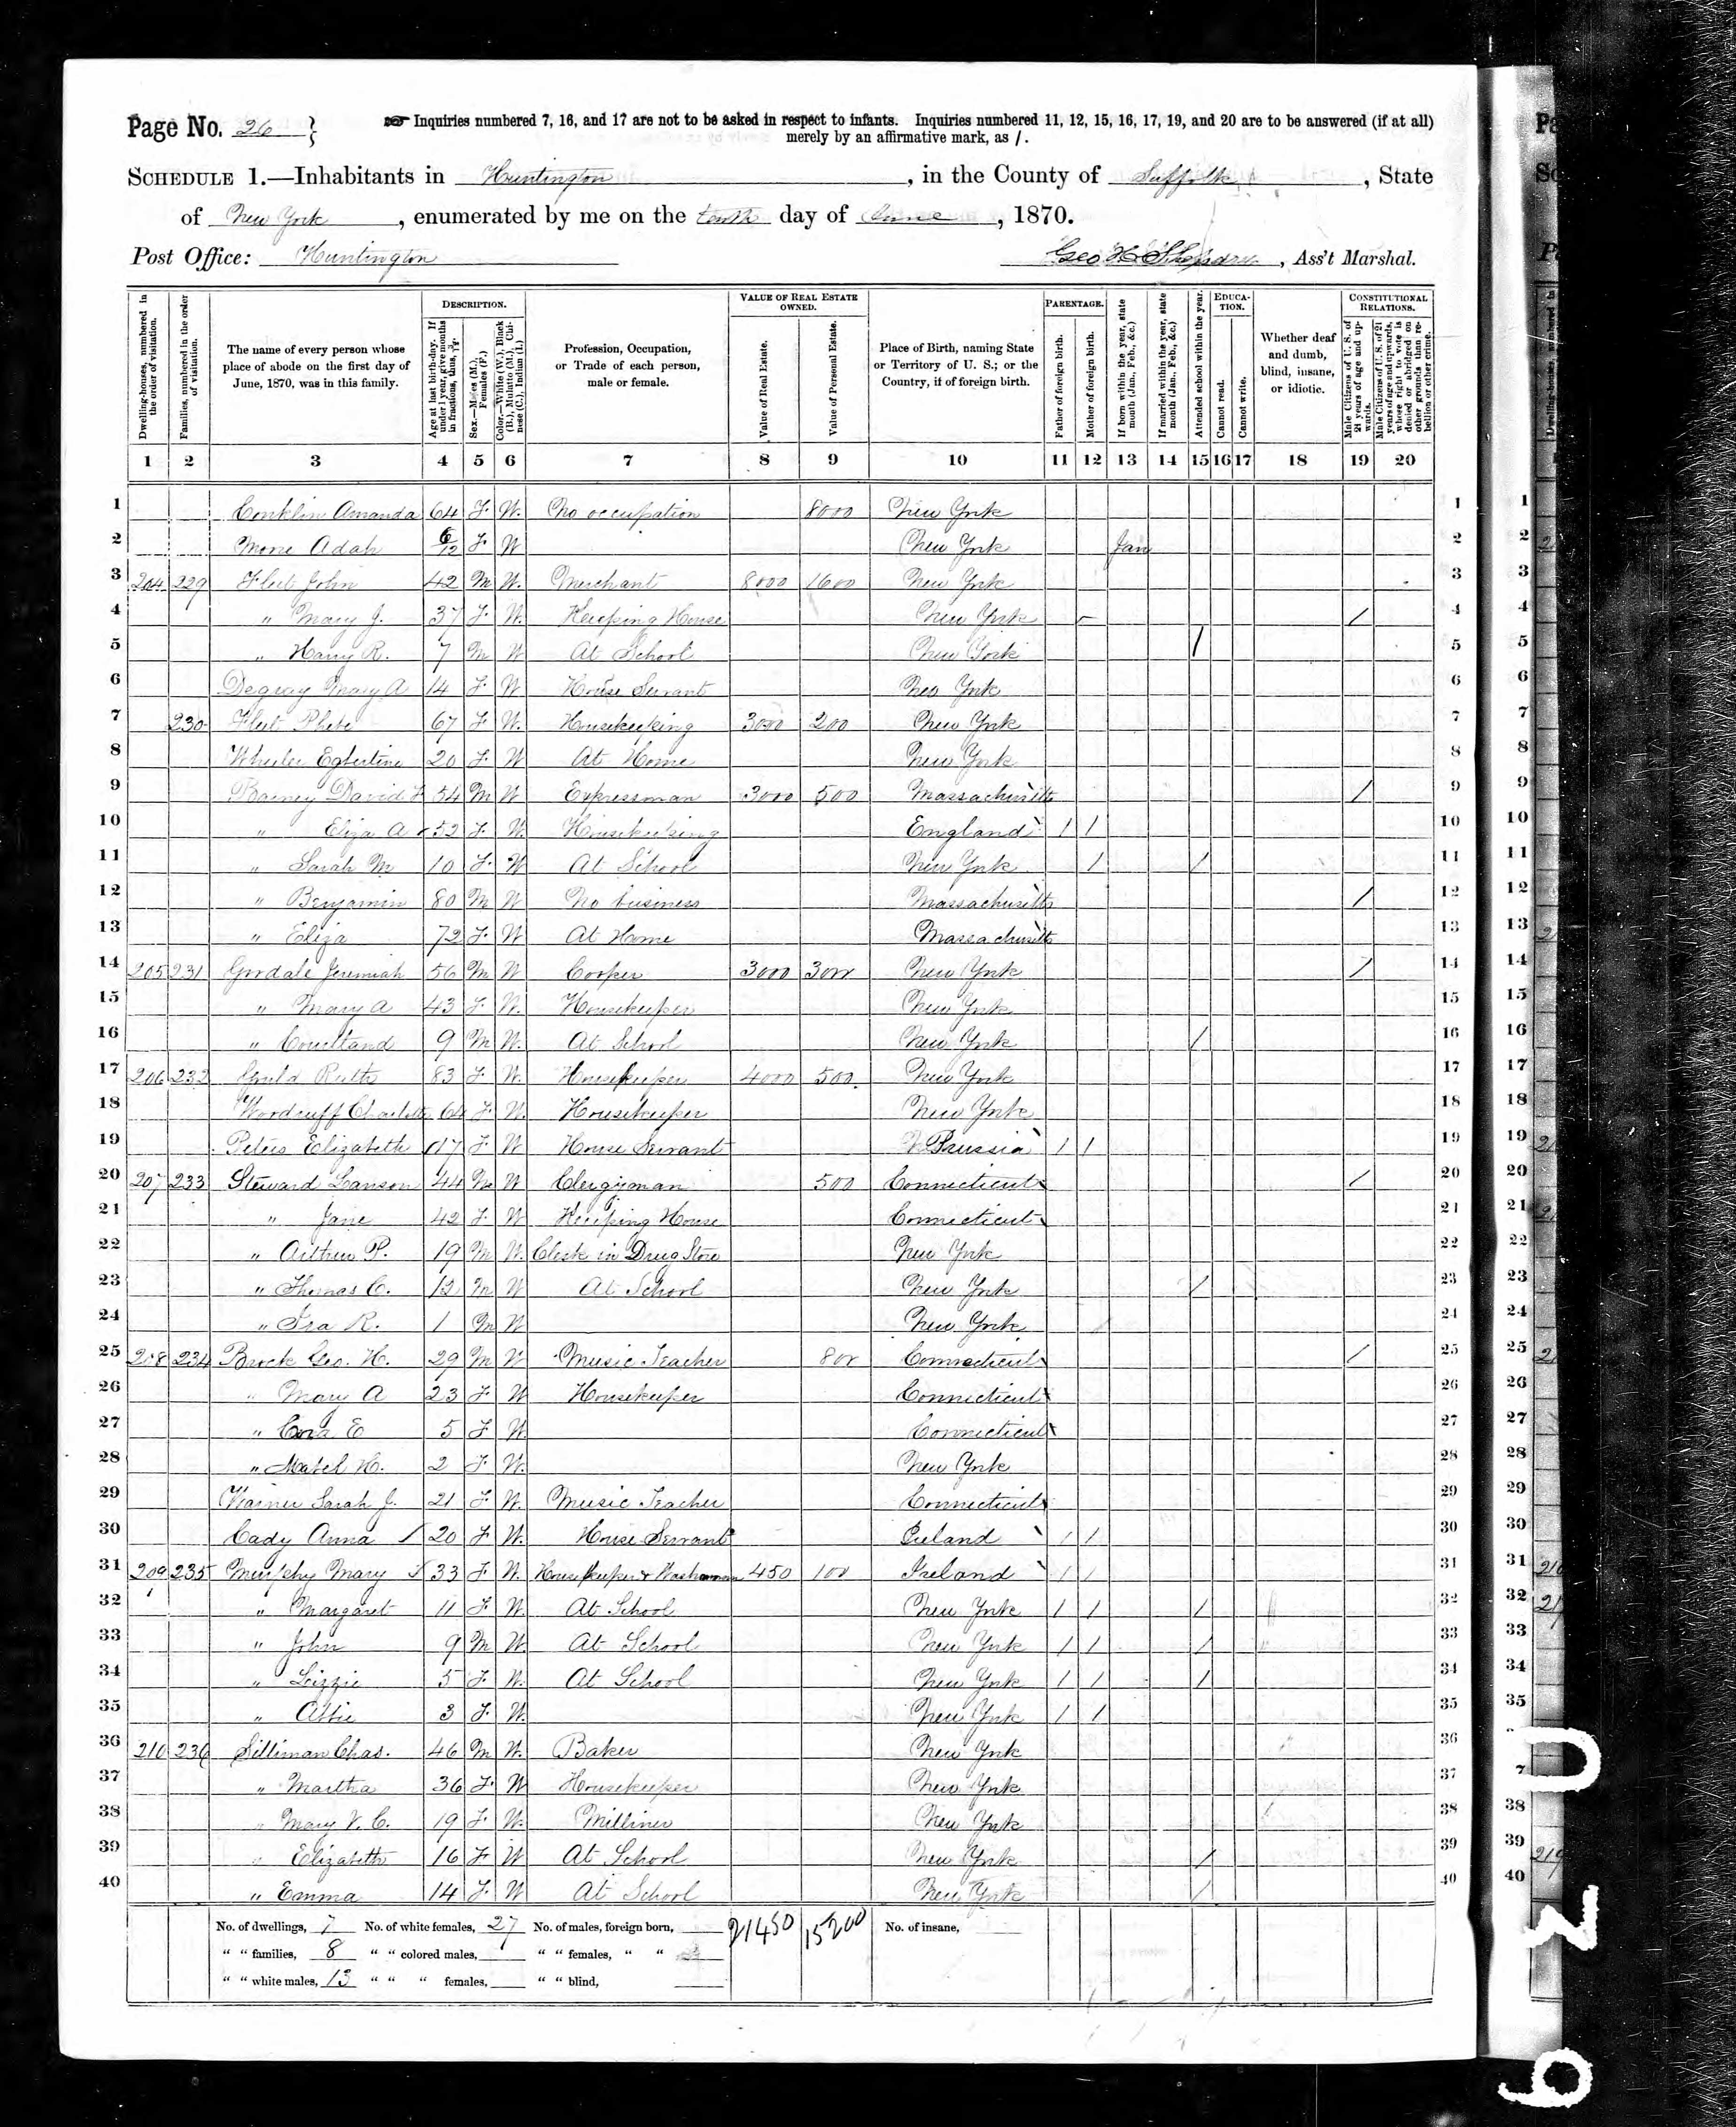 Page No. 26 }
☞ Inquiries numbered 7, 16, and 17 are not to be asked in respect to infants. Inquiries numbered 11, 12, 15, 16, 17, 19, and 20 are to be answered (if at all)
merely by an affirmative mark, as /.
SCHEDULE 1.—Inhabitants in Huntington, in the County of Suffolk, State
of New York, enumerated by me on the tenth day of June, 1870.
Post Office: Huntington
Geo H, Ass't Marshal.
Dwelling-houses, numbered in the order of visitation.
Families, numbered in the order of visitation.
The name of every person whose place of abode on the first day of June, 1870, was in this family.
DESCRIPTION.
Age at last birth-day. If under 1 year, give months in fractions, thus, 3/12.
Sex.—Males (M.), Females (F.)
Color.—White (W.), Black (B.), Mulatto (M.), Chinese (C.), Indian (I.)
Profession, Occupation, or Trade of each person, male or female.
VALUE OF REAL ESTATE OWNED.
Value of Real Estate.
Value of Personal Estate.
Place of Birth, naming State or Territory of U. S.; or the Country, if of foreign birth.
PARENTAGE.
Father of foreign birth.
Mother of foreign birth.
If born within the year, state month (Jan., Feb., &c.)
If married within the year, state month (Jan., Feb., &c.)
Attended school within the year.
EDUCATION.
Cannot read.
Cannot write.
Whether deaf and dumb, blind, insane, or idiotic.
CONSTITUTIONAL RELATIONS.
Male Citizens of U. S. of 21 years of age and upwards.
Male Citizens of U. S. of 21 years of age and upwards, whose right to vote is denied or abridged on other grounds than rebellion or other crime.
1 2 3 4 5 6 7 8 9 10 11 12 13 14 15 16 17 18 19 20
1 Conklin Amanda 64 F W. No occupation 8000 New York 1
2 Adah 6/12 F W New York Jan 2
3 204 229 Fleet John 42 M W. Merchant 8000 1600 New York 3
4 " Mary J. 37 F W. Keeping House New York / 4
5 " Harry R. 7 M W At School New York / 5
6 Mary A 14 F W House Servant New York 6
7 230 Fleet Phebe 67 F W. Housekeeking 3000 200 New York 7
8 Wheeler Egbertine 20 F W At Home New York 8
9 David 54 M W Expressman 3000 500 Massachusetts / 9
10 " Eliza A 52 F W. Housekeeking England / / 10
11 " Sarah M 10 F W At School New York / / 11
12 " Benjamin 80 M W No business Massachusetts / 12
13 " Eliza 72 F W At Home Massachusetts 13
14 205 231 Jeremiah 56 M W Cooper 3000 3000 New York / 14
15 " Mary A 43 F W. Housekeeper New York 15
16 " Courtland 9 M W. At School New York / 16
17 206 232 Gould Ruth 83 F W. Housekeeper 4000 500. New York 17
18 Woodruff Charlotte 64 F W. Housekeeper New York 18
19 Peters Elizabeth 17 F W House Servant Prussia / / 19
20 207 233 Steward Lanson 44 M W Clergyman 500 Connecticut / 20
21 " Jane 42 F W Keeping House Connecticut 21
22 " Arthur P. 19 M W. Clerk in Drug Store New York 22
23 " Thomas C. 12 M W At School New York / 23
24 " Ira R. 1 M W New York 24
25 208 234 Brock Geo. H. 29 M W Music Teacher 800 Connecticut / 25
26 " Mary A 23 F W Housekeeper Connecticut 26
27 " Cora E 5 F W. Connecticut 27
28 " Mabel H. 2 F W. New York 28
29 Warner Sarah J. 21 F W. Music Teacher Connecticut 29
30 Cady Anna / 20 F W. House Servant Ireland / / 30
31 209 235 Murphy Mary 33 F W. Housekeeper & Washwoman 450 100 Ireland / / 31
32 " Margaret 11 F W. At School New York / / / 32
33 " John 9 M W. At School New York / / / 33
34 " Lizzie 5 F W. At School New York / / / 34
35 " 3 F W. New York / / 35
36 210 236 Silliman Chas. 46 M W. Baker New York 36
37 " Martha 36 F W Housekeeper New York 37
38 " Mary V. C. 19 F W. Milliner New York 38
39 " Elizabeth 16 F W At School New York / 39
40 " Emma 14 F W At School New York / 40
No. of dwellings, 7 No. of white females, 27 No. of males, foreign born, 21450 15200 No. of insane,
" " families, 8 " " colored males, " " females, " "
" " white males, 13 " " " females, " " blind,